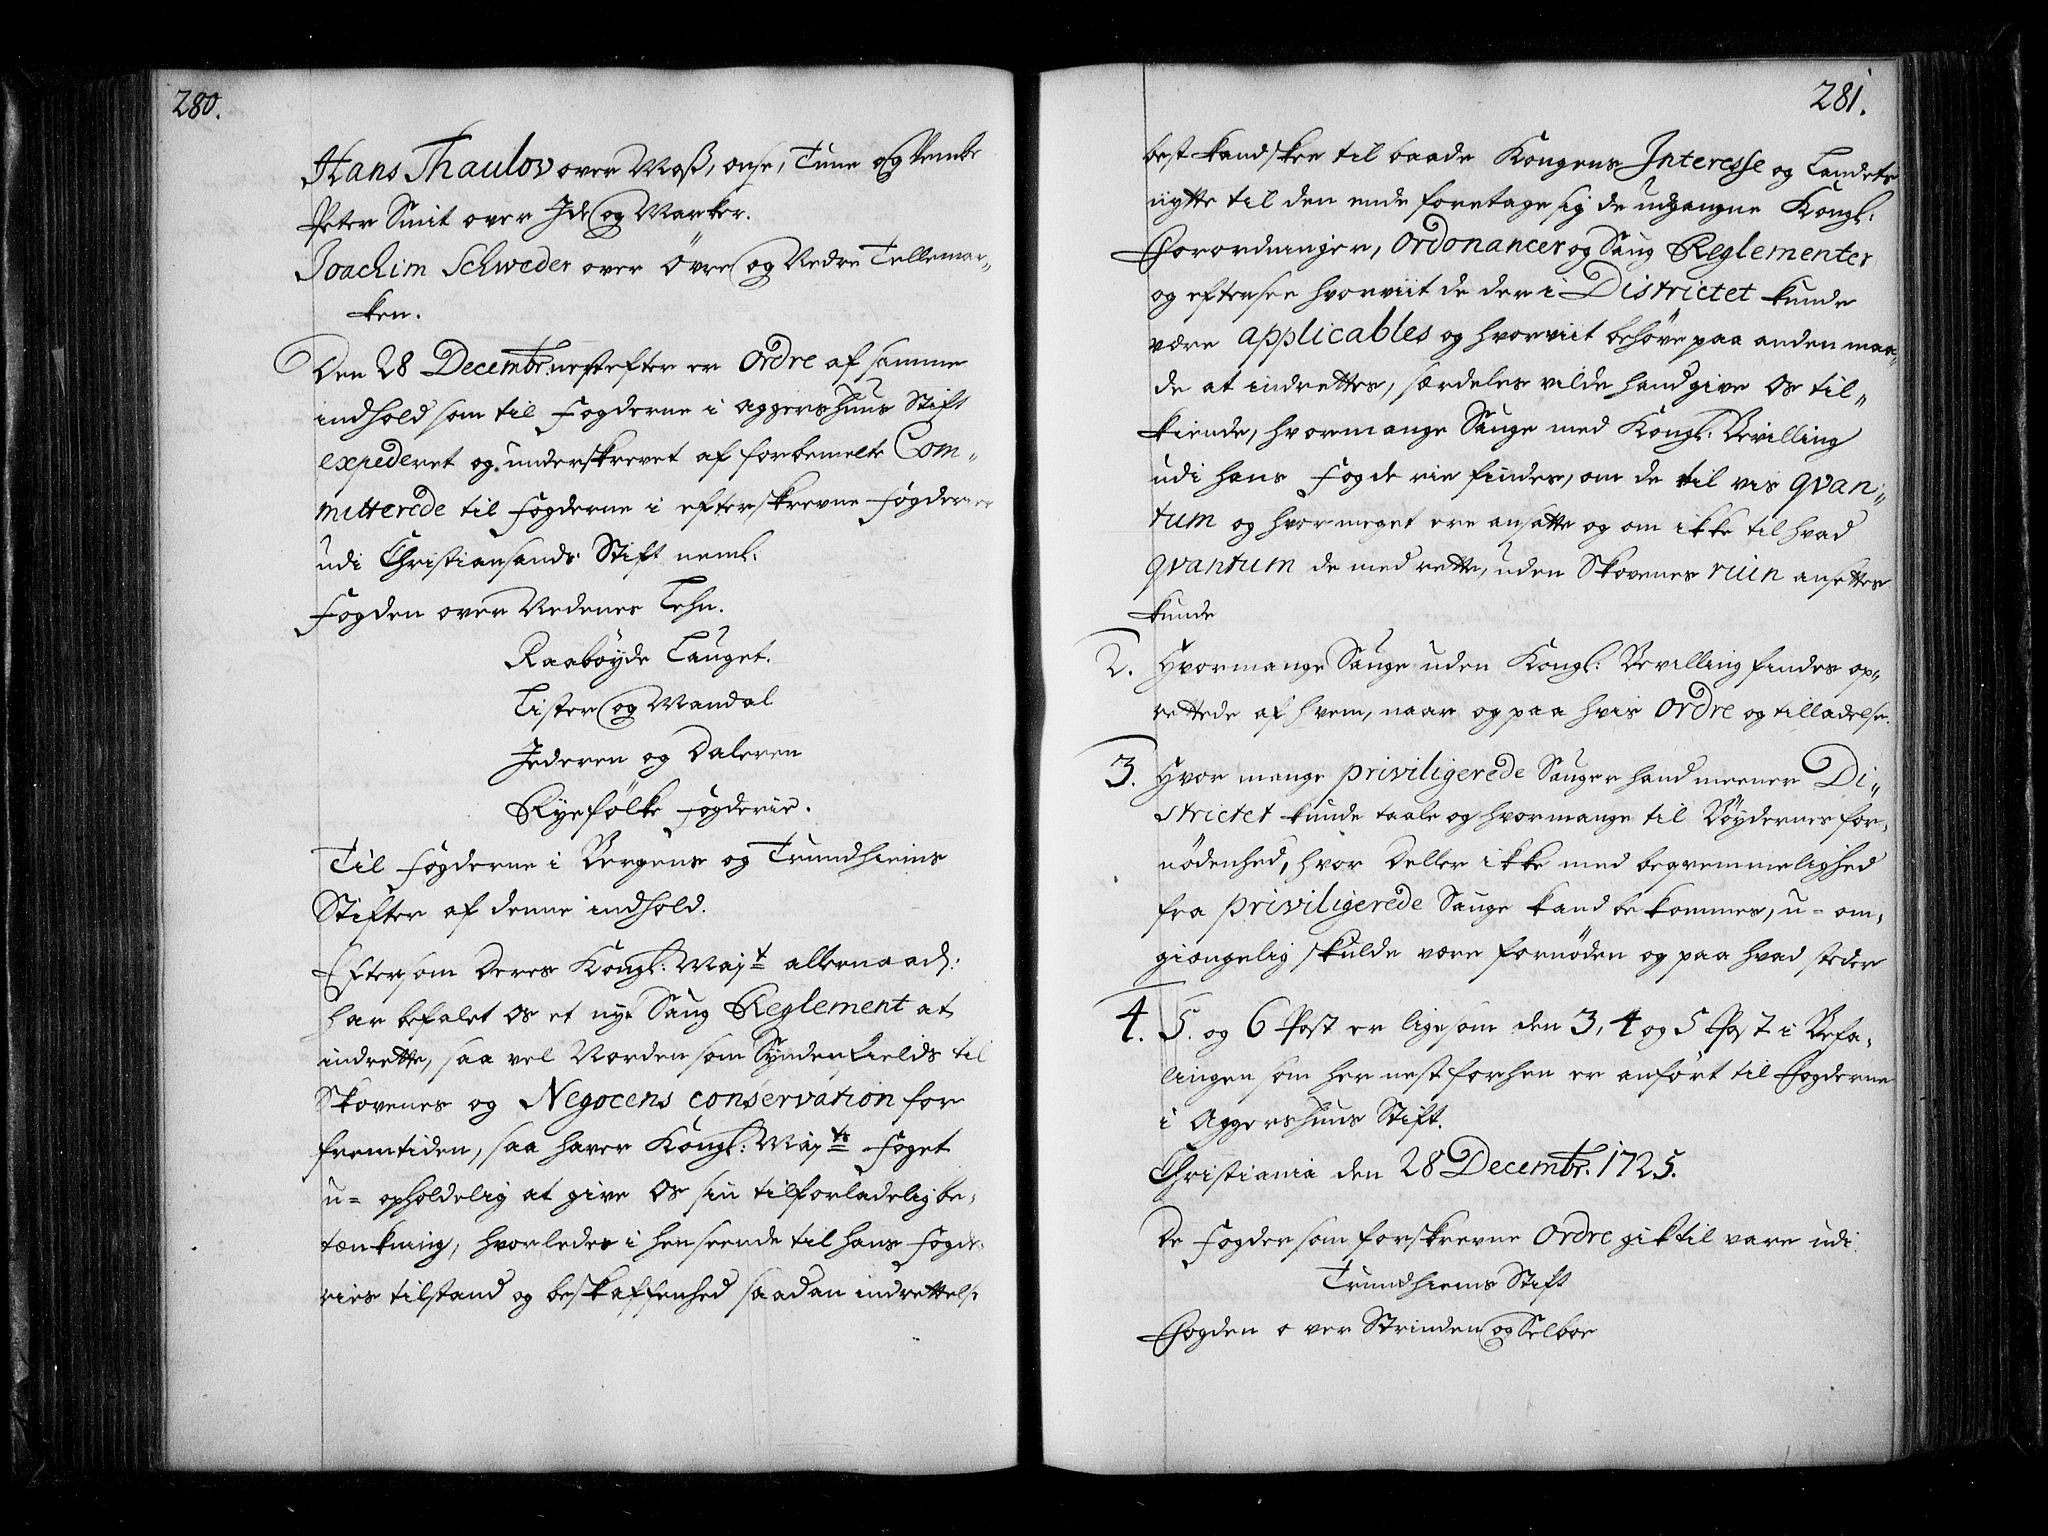 280.
Hans Thaulov over Moss, onsø, Tune og Vembe
Peter Smit over Ide og Marker.
Joachim Schweder over Övre og Nedre Tellemar„
ken.
Den 28 Decembr. nestefter er Ordre af samme
indhold som til Fogderne i Aggershuus Stift
expederet og underskrevet af forbemelte Com„
mitterede til Fogderne i efterskrevne Fogderier
udi Christiansands Stift neml:
Fogden over Nedenes Lehn.
Raabøyde Lauget.
Lister og Mandal
Jederen og Dalerne
Ryefølke Fogderie.
Til Fogderne i Bergens og Trundhiems
Stifter af denne indhold.
Eftersom Deres Kongl: Majt allernaad:
har befalet os et nyt Saug Reglement at
indrette, saa vel Norden som Syndenfields til
Skovenes og Negocens conservation for
fremtiden, saa haver Kongl: Majts Foget
u=opholdelig at give os sin tilforladelig be„
tænkning, hvorledes i henseende til hans Fogde„
ries tilstand og beskaffenhed saadan indrettelse
281.
best kand skee til baade Kongens Interesse og Landets
nytte til den ende foretage sig de udgangne Kongl:
Forordninger, Ordonancer og Saug Reglementer
og eftersee hvorviit de der i Districtet kunde
være applicables og hvorviit behöve paa anden maa„
de at indrettes, særdeles vilde hand give os til„
kiende, hvormange Sauge med Kongl: Bevilling
udi hans Fogderie findes, om de til vis qvan„
tum og hvormeget ere ansatte og om ikke til hvad
qvantum de med rette, uden Skovenes ruin ansettes
kunde
2. Hvormange Sauge uden Kongl: Bevilling findes op„
rettede af hvem, naar og paa hvis Ordre og tilladelse.
3. Hvor mange priviligerede Sauger hand meener Di„
strictet kunde taale og hvormange til Bøydernes for„
nödenhed, hvor Deller ikke med beqvemmelighed
fra priviligerede Sauge kand bekommes, u=om„
giængelig skulde være fornöden og paa hvad steder
4. 5. og 6 Post er ligesom den 3, 4 og 5 Post i Befa„
lingen som her nest forhen er anfört til Fogderne
i Aggershuus Stift.
Christiania den 28 Decembr. 1725.
De Fogder som forskrevne Ordre gik til vare udi
Trundhiems Stift
Fogden over Strinden og Selboe